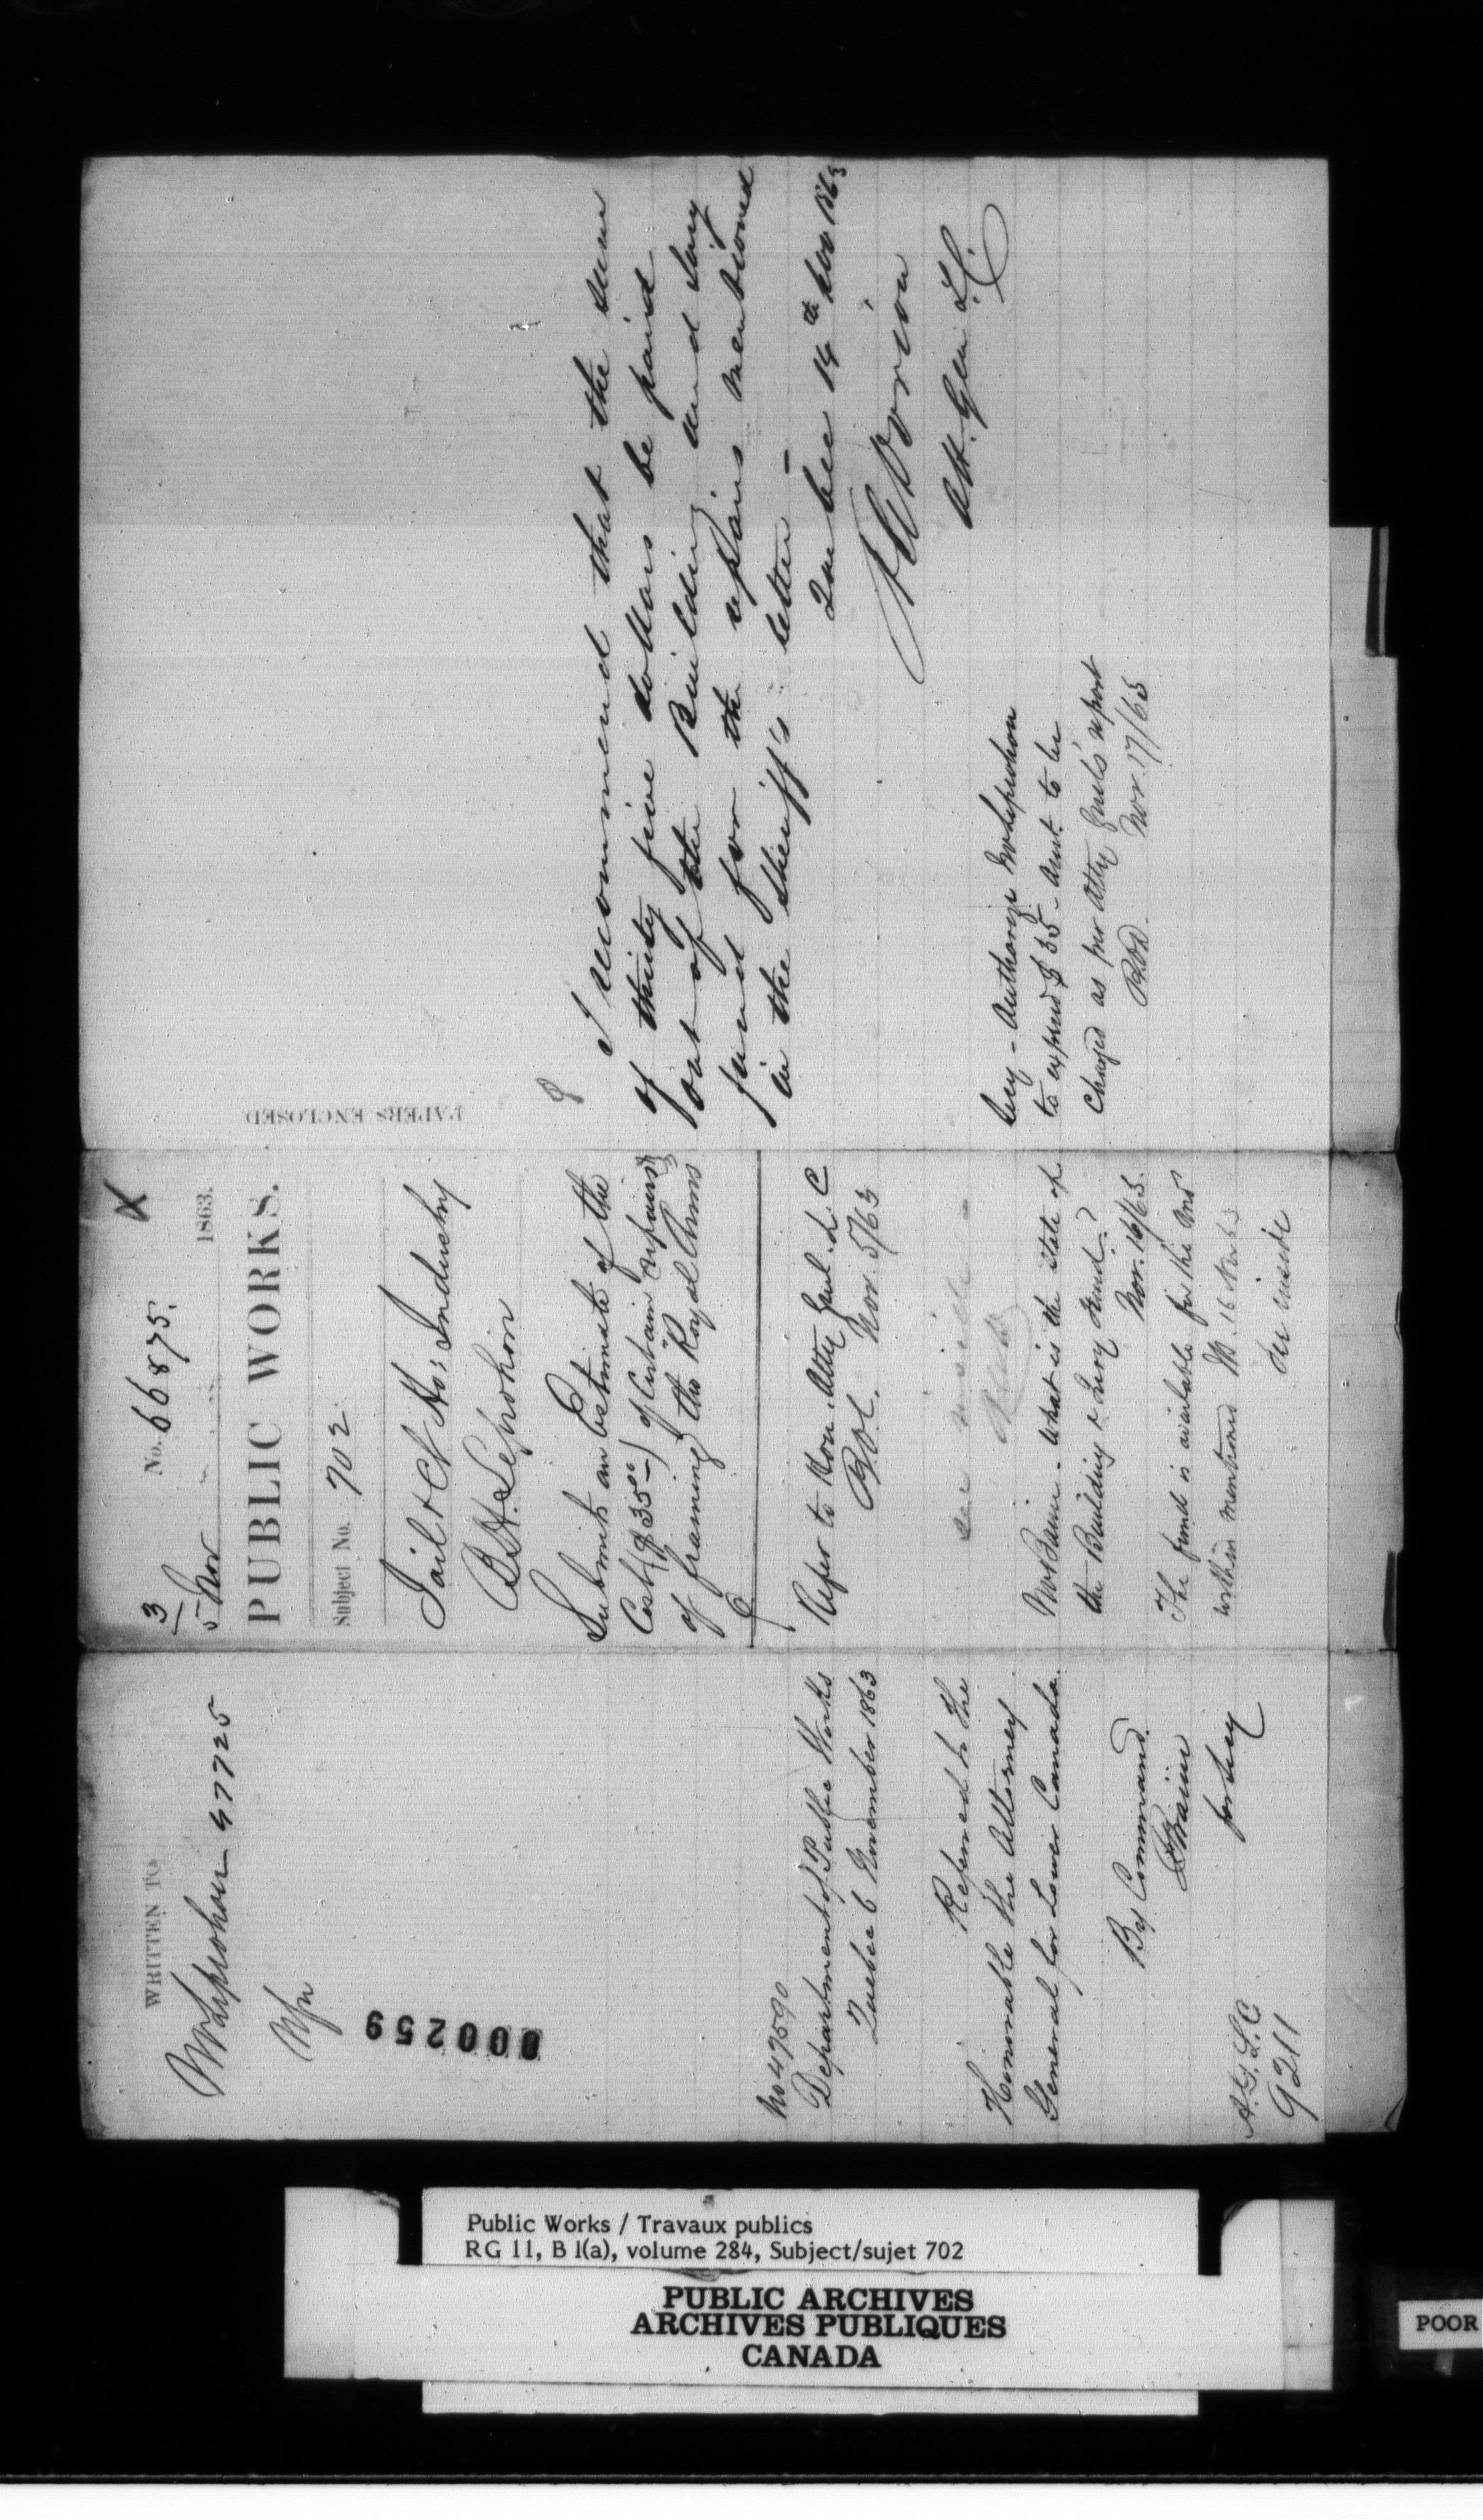 WRITTEN TO
Mr Leprohon 47725
000259
No 47590
Department of Public Works
Quebec 6 November 1863
Referred to the
Honorable the Attorney
General for Lower Canada.
By Command.
Braün
for Secy
A.G. L.C
9211
3
5 Nov
No. 66875.
X
1863.
PUBLIC WORKS.
Subject No. 702
Jail & Ct Ho: Industry
B.H. Leprohon
Submits an Estimate of the
Cost ($35 00) of Certain repairs &
of framing the Royal Arms
Refer to Hon. Atty Genl. L. C
Nov. 5/63
see inside -
Mr Baine - What is the state of
the Building & Jury Fund?
Nov. 16/63.
The fund is available for the
within mentioned 16 Nov 63
See inside
PAPERS ENCLOSED
I recommend that the sum
of thirty five dollars be paid
out of the Building and Jury
fund for the repairs mentioned
in the Sheriff's letter -
Quebec 14th Nov 1863
A A Dorion
Att. Gen L.C.
Secy - Authorize Mr Leprohon
to expend $35 - Amt. to be
Charged as per Atty Genl's report
Nov. 17/63
Public Works / Travaux publics
RG 11, B 1(a), volume 284, Subject/sujet 702
PUBLIC ARCHIVES
ARCHIVES PUBLIQUES
CANADA
POOR